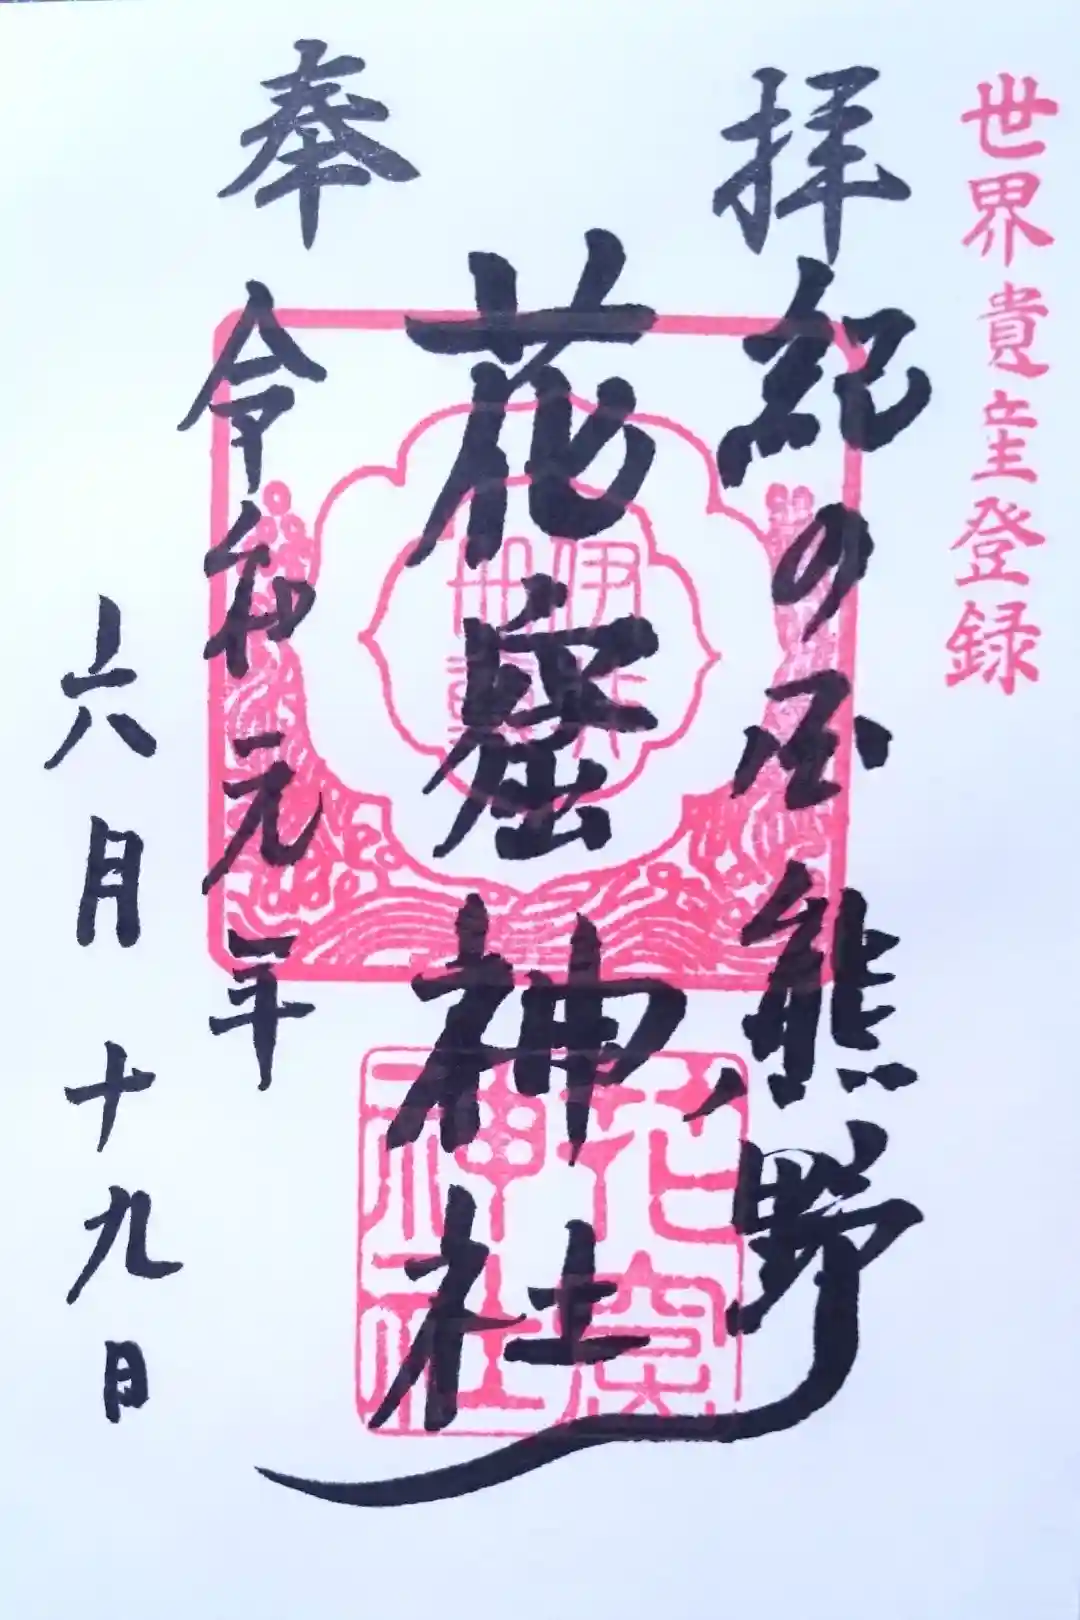 世界遺産登録
拝
紀の国熊野
花窟神社
奉
令和元年
六月十九日
花窟神社